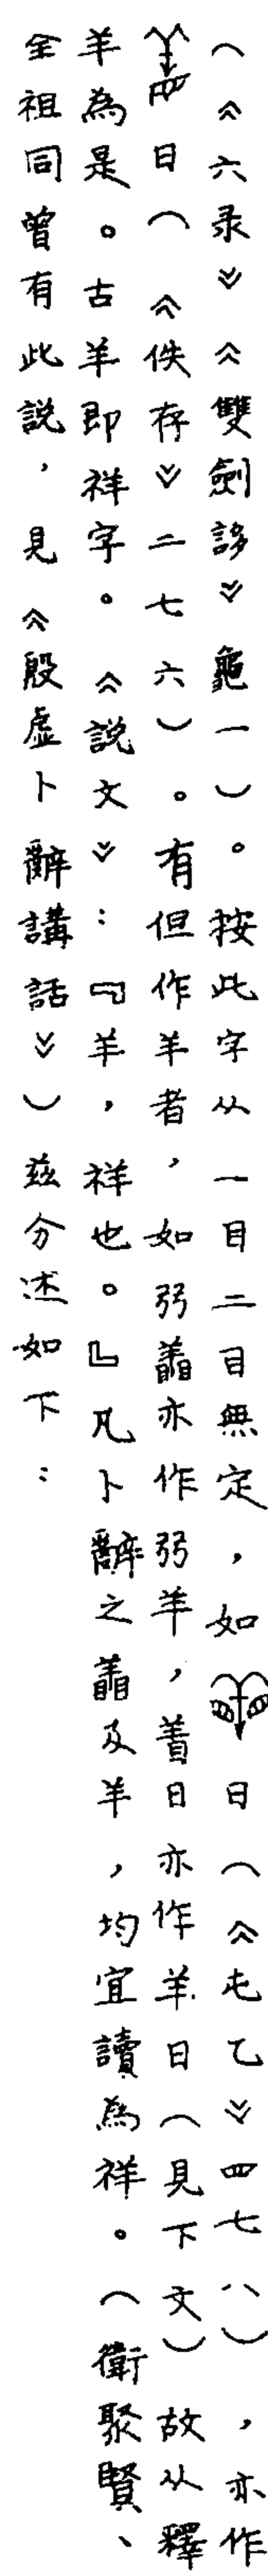 （《六录》《雙劍誃》龜一）。按此字从一目二目無定，如日（《屯乙》四七八），亦作
日（《佚存》二七六）。有但作羊者，如弜𦎫亦作弜羊，着日亦作羊日（見下文）故从釋
羊為是。古羊即祥字。《說文》：『羊，祥也。』凡卜辭之及羊，均宜讀為祥。（衛聚賢、
全祖同曾有此說，見《殷虛卜辭講話》）茲分述如下：